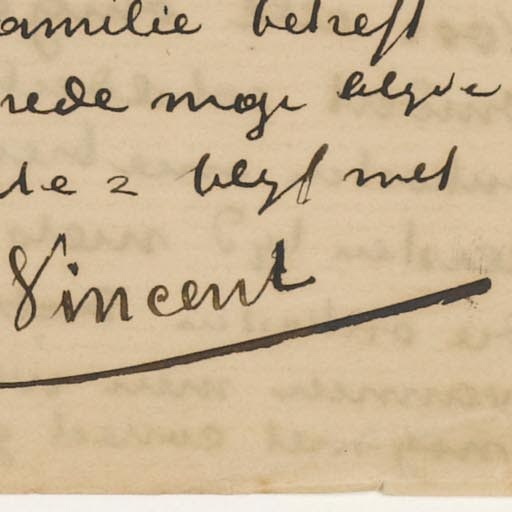 amilie betreft
rede moge blyve
te = blyf met
Vincent